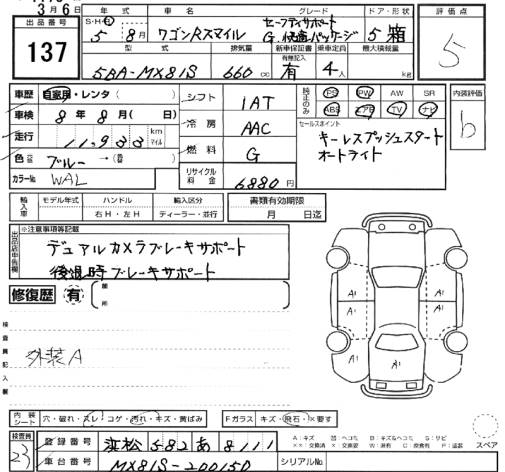 3月6日
出品番号 137
年式 車名 グレード ドア・形状 評価点
S・H・R 5年 8月 ワゴンRスマイル セーフティサポート G 快適パッケージ 5 箱 5
型式 排気量 新車保証書 乗車定員 最大積載量
有無記入
5BA-MX81S 660cc 有 4人 kg
車歴 自家用・レンタ( ) シフト 1AT 純正のみ PS PW AW SR 内装評価
ABS エアB TV ナビ b
車検 8年8月( 日) 冷房 AAC セールスポイント
キーレスプッシュスタート
走行 11,933 km マイル 燃料 G オートライト
色 ブルー→
カラーNo WAL リサイクル料金 6880円
輸入車 モデル年式 ハンドル 輸入区分 書類有効期限
右H・左H ディーラー・並行 月 日迄
出品店申告欄 ※注意事項等記載
デュアルカメラブレーキサポート
後退時ブレーキサポート
修復歴 有 箇所
検査員記入欄
外装A
A1 A1
A1 A1
A1
内装シート 穴・破れ・スレ・コゲ・汚れ・キズ・黄ばみ Fガラス キズ・飛石・X要す スペア
検査員 23
登録番号 浜松 582 あ 8111
車台番号 MX81S-200150 シリアルNo